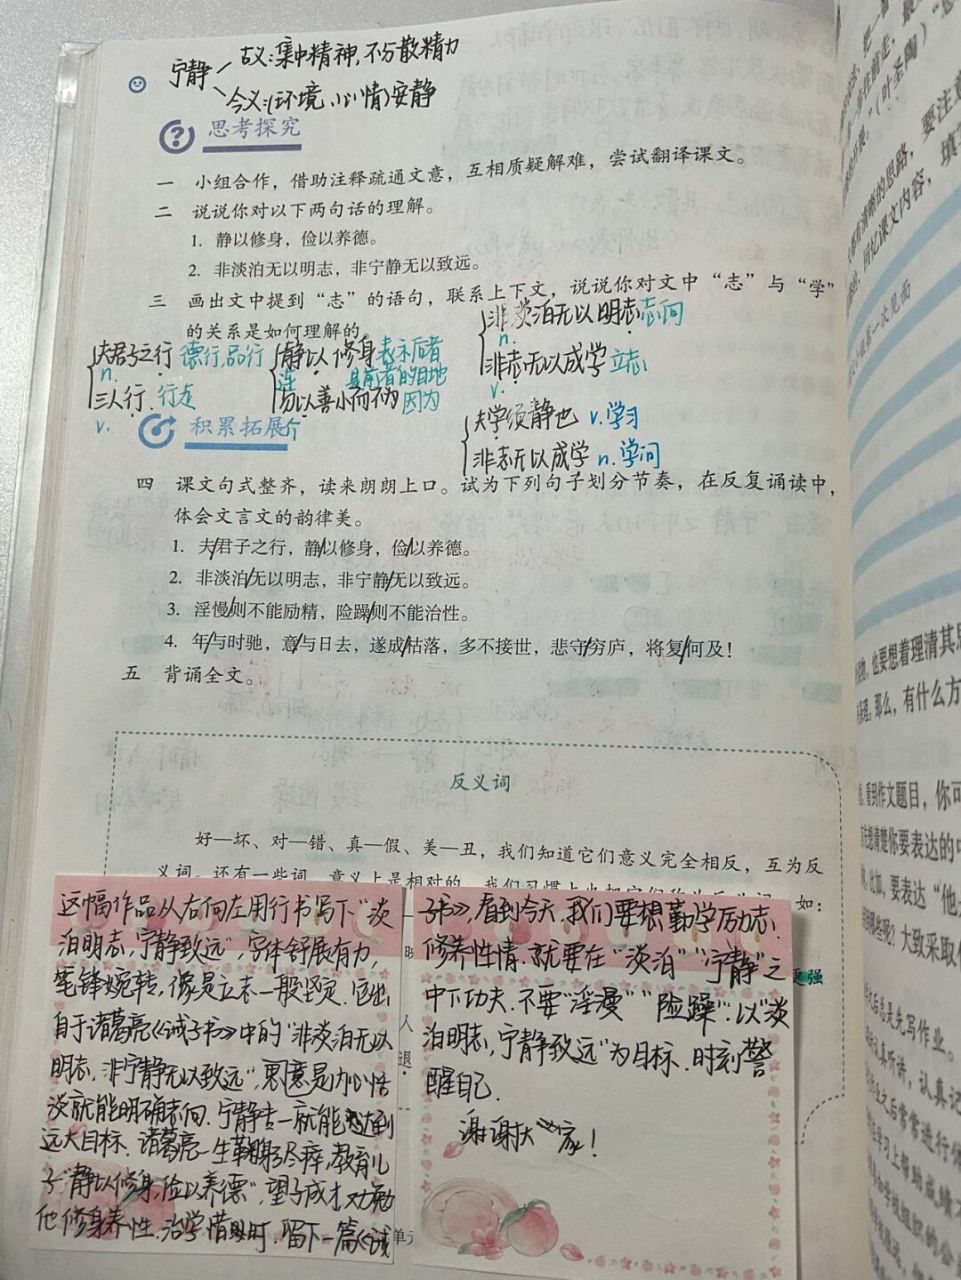 宁静
古义:集中精神,不分散精力
今义:(环境、心情)安静
思考探究
一 小组合作，借助注释疏通文意，互相质疑解难，尝试翻译课文。
二 说说你对以下两句话的理解。
1. 静以修身，俭以养德。
2. 非淡泊无以明志，非宁静无以致远。
三 画出文中提到“志”的语句，联系上下文，说说你对文中“志”与“学”
的关系是如何理解的。
夫君子之行 德行,品行
n.
三人行 行走
v.
静以修身 表示后者
是前者的目的
连
勿以善小而不为 因为
介
非淡泊无以明志 志向
n.
非志无以成学 立志
v.
夫学须静也 v.学习
非志无以成学 n.学问
积累拓展
四 课文句式整齐，读来朗朗上口。试为下列句子划分节奏，在反复诵读中，
体会文言文的韵律美。
1. 夫/君子之行，静/以修身，俭/以养德。
2. 非淡泊/无以明志，非宁静/无以致远。
3. 淫慢/则不能励精，险躁/则不能治性。
4. 年/与时驰，意/与日去，遂成/枯落，多不接世，悲守/穷庐，将复/何及！
五 背诵全文。
反义词
好—坏、对—错、真—假、美—丑，我们知道它们意义完全相反，互为反
义词。还有一些词，意义上是相对的，
如：
更强
人
退
单元
这幅作品从右向左用行书写下“淡
泊明志，宁静致远”，字体舒展有力，
笔锋婉转，像是立志一般坚定。它出
自于诸葛亮《诫子书》中的“非淡泊无以
明志，非宁静无以致远”，意是内心恬
淡就能明确志向，宁静专一就能达到
远大目标。诸葛亮一生鞠躬尽瘁，教育儿
子“静以修身，俭以养德”，望子成才，劝勉
他修身养性、治学惜时，留下一篇《诫
子书》，看到今天，我们要想勤学励志、
修养性情，就要在“淡泊”“宁静”之
中下功夫，不要“淫漫”“险躁”，以“淡
泊明志，宁静致远”为目标，时刻警
醒自己.
谢谢大家！
把一
(叶圣陶)
清晰的思路，要注意
回忆课文内容，填
第一次见面
，也要想着理清其思
那么，有什么方
看到作文题目，你可
想清楚你要表达的中
比如，要表达“他
大致采取
总是先写作业。
真听讲，认真记
之后常常进行
学习上帮助成绩